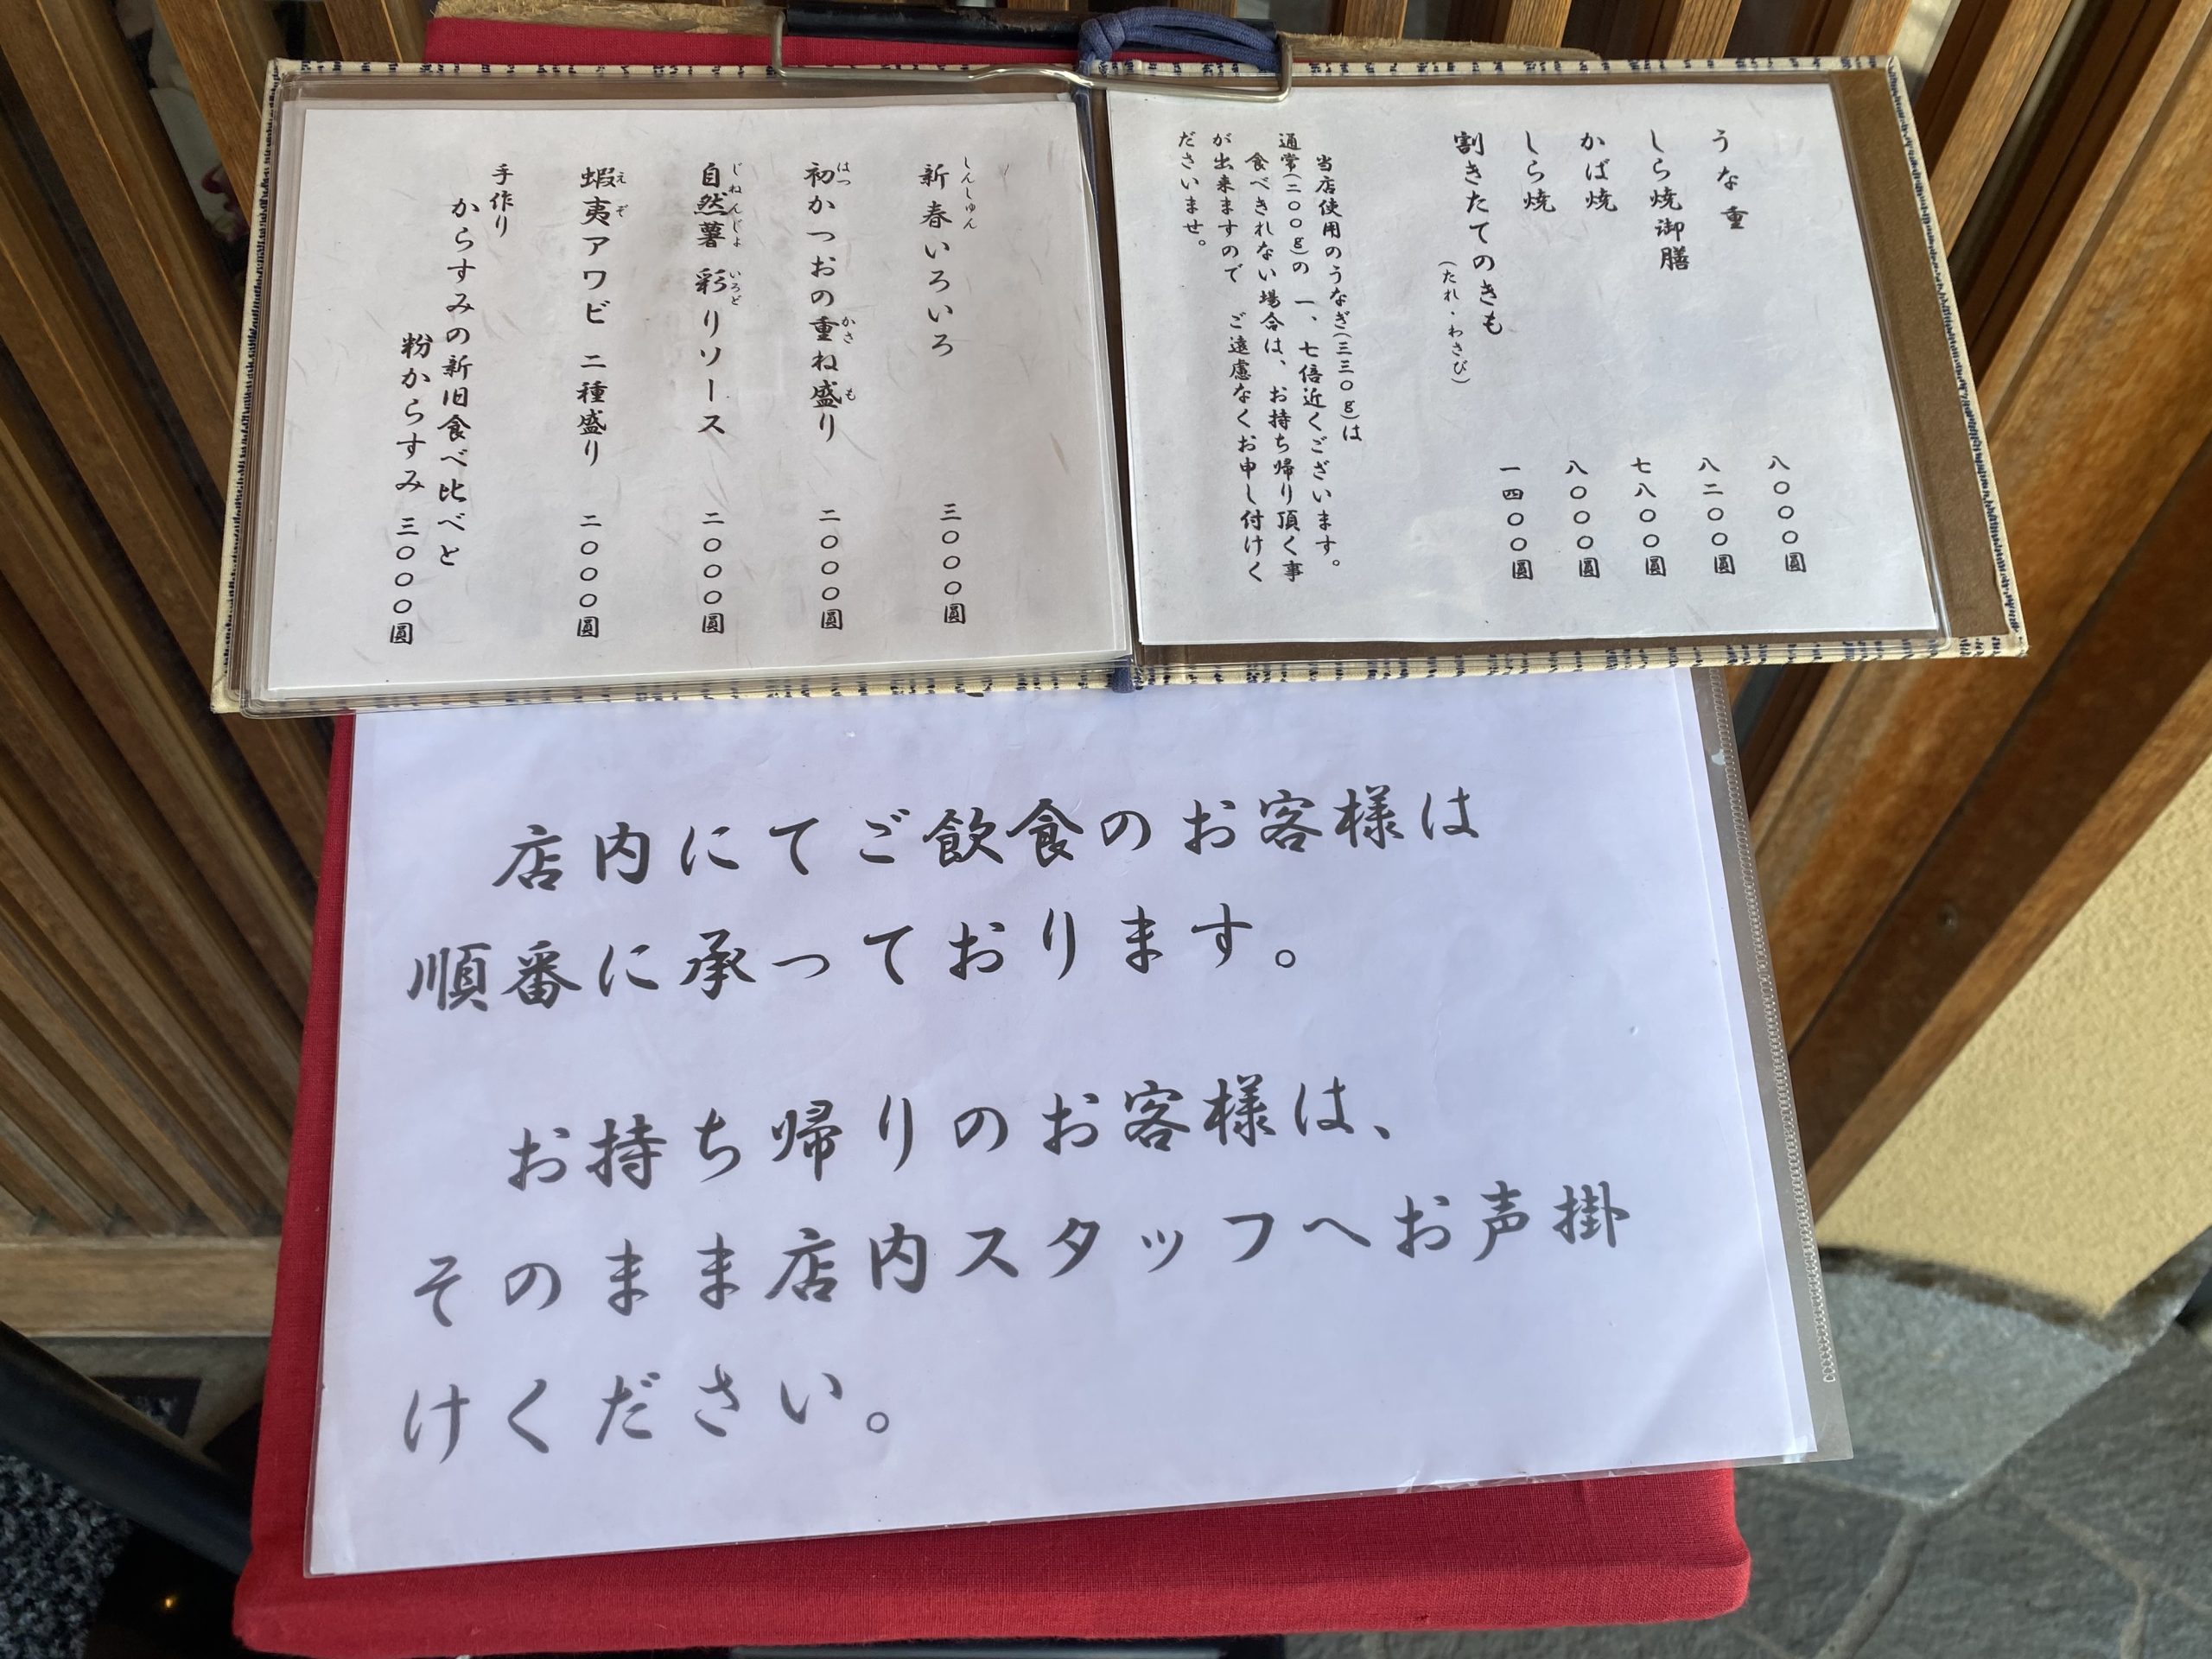 うな重 八〇〇〇圓
しら焼御膳 八二〇〇圓
かば焼 七八〇〇圓
しら焼 八〇〇〇圓
割きたてのきも 一四〇〇圓
(たれ・わさび)
当店使用のうなぎ(三三〇g)は
通常(二〇〇g)の 一、七倍近くございます。
食べきれない場合は、お持ち帰り頂く事
が出来ますので ご遠慮なくお申し付けく
ださいませ。
しんしゅん
新春いろいろ 三〇〇〇圓
はつ かさ も
初かつおの重ね盛り 二〇〇〇圓
じねんじょ いろど
自然薯 彩りソース 二〇〇〇圓
えぞ
蝦夷アワビ 二種盛り 二〇〇〇圓
手作り
からすみの新旧食べ比べと
粉からすみ 三〇〇〇圓
店内にてご飲食のお客様は
順番に承っております。
お持ち帰りのお客様は、
そのまま店内スタッフへお声掛
けください。